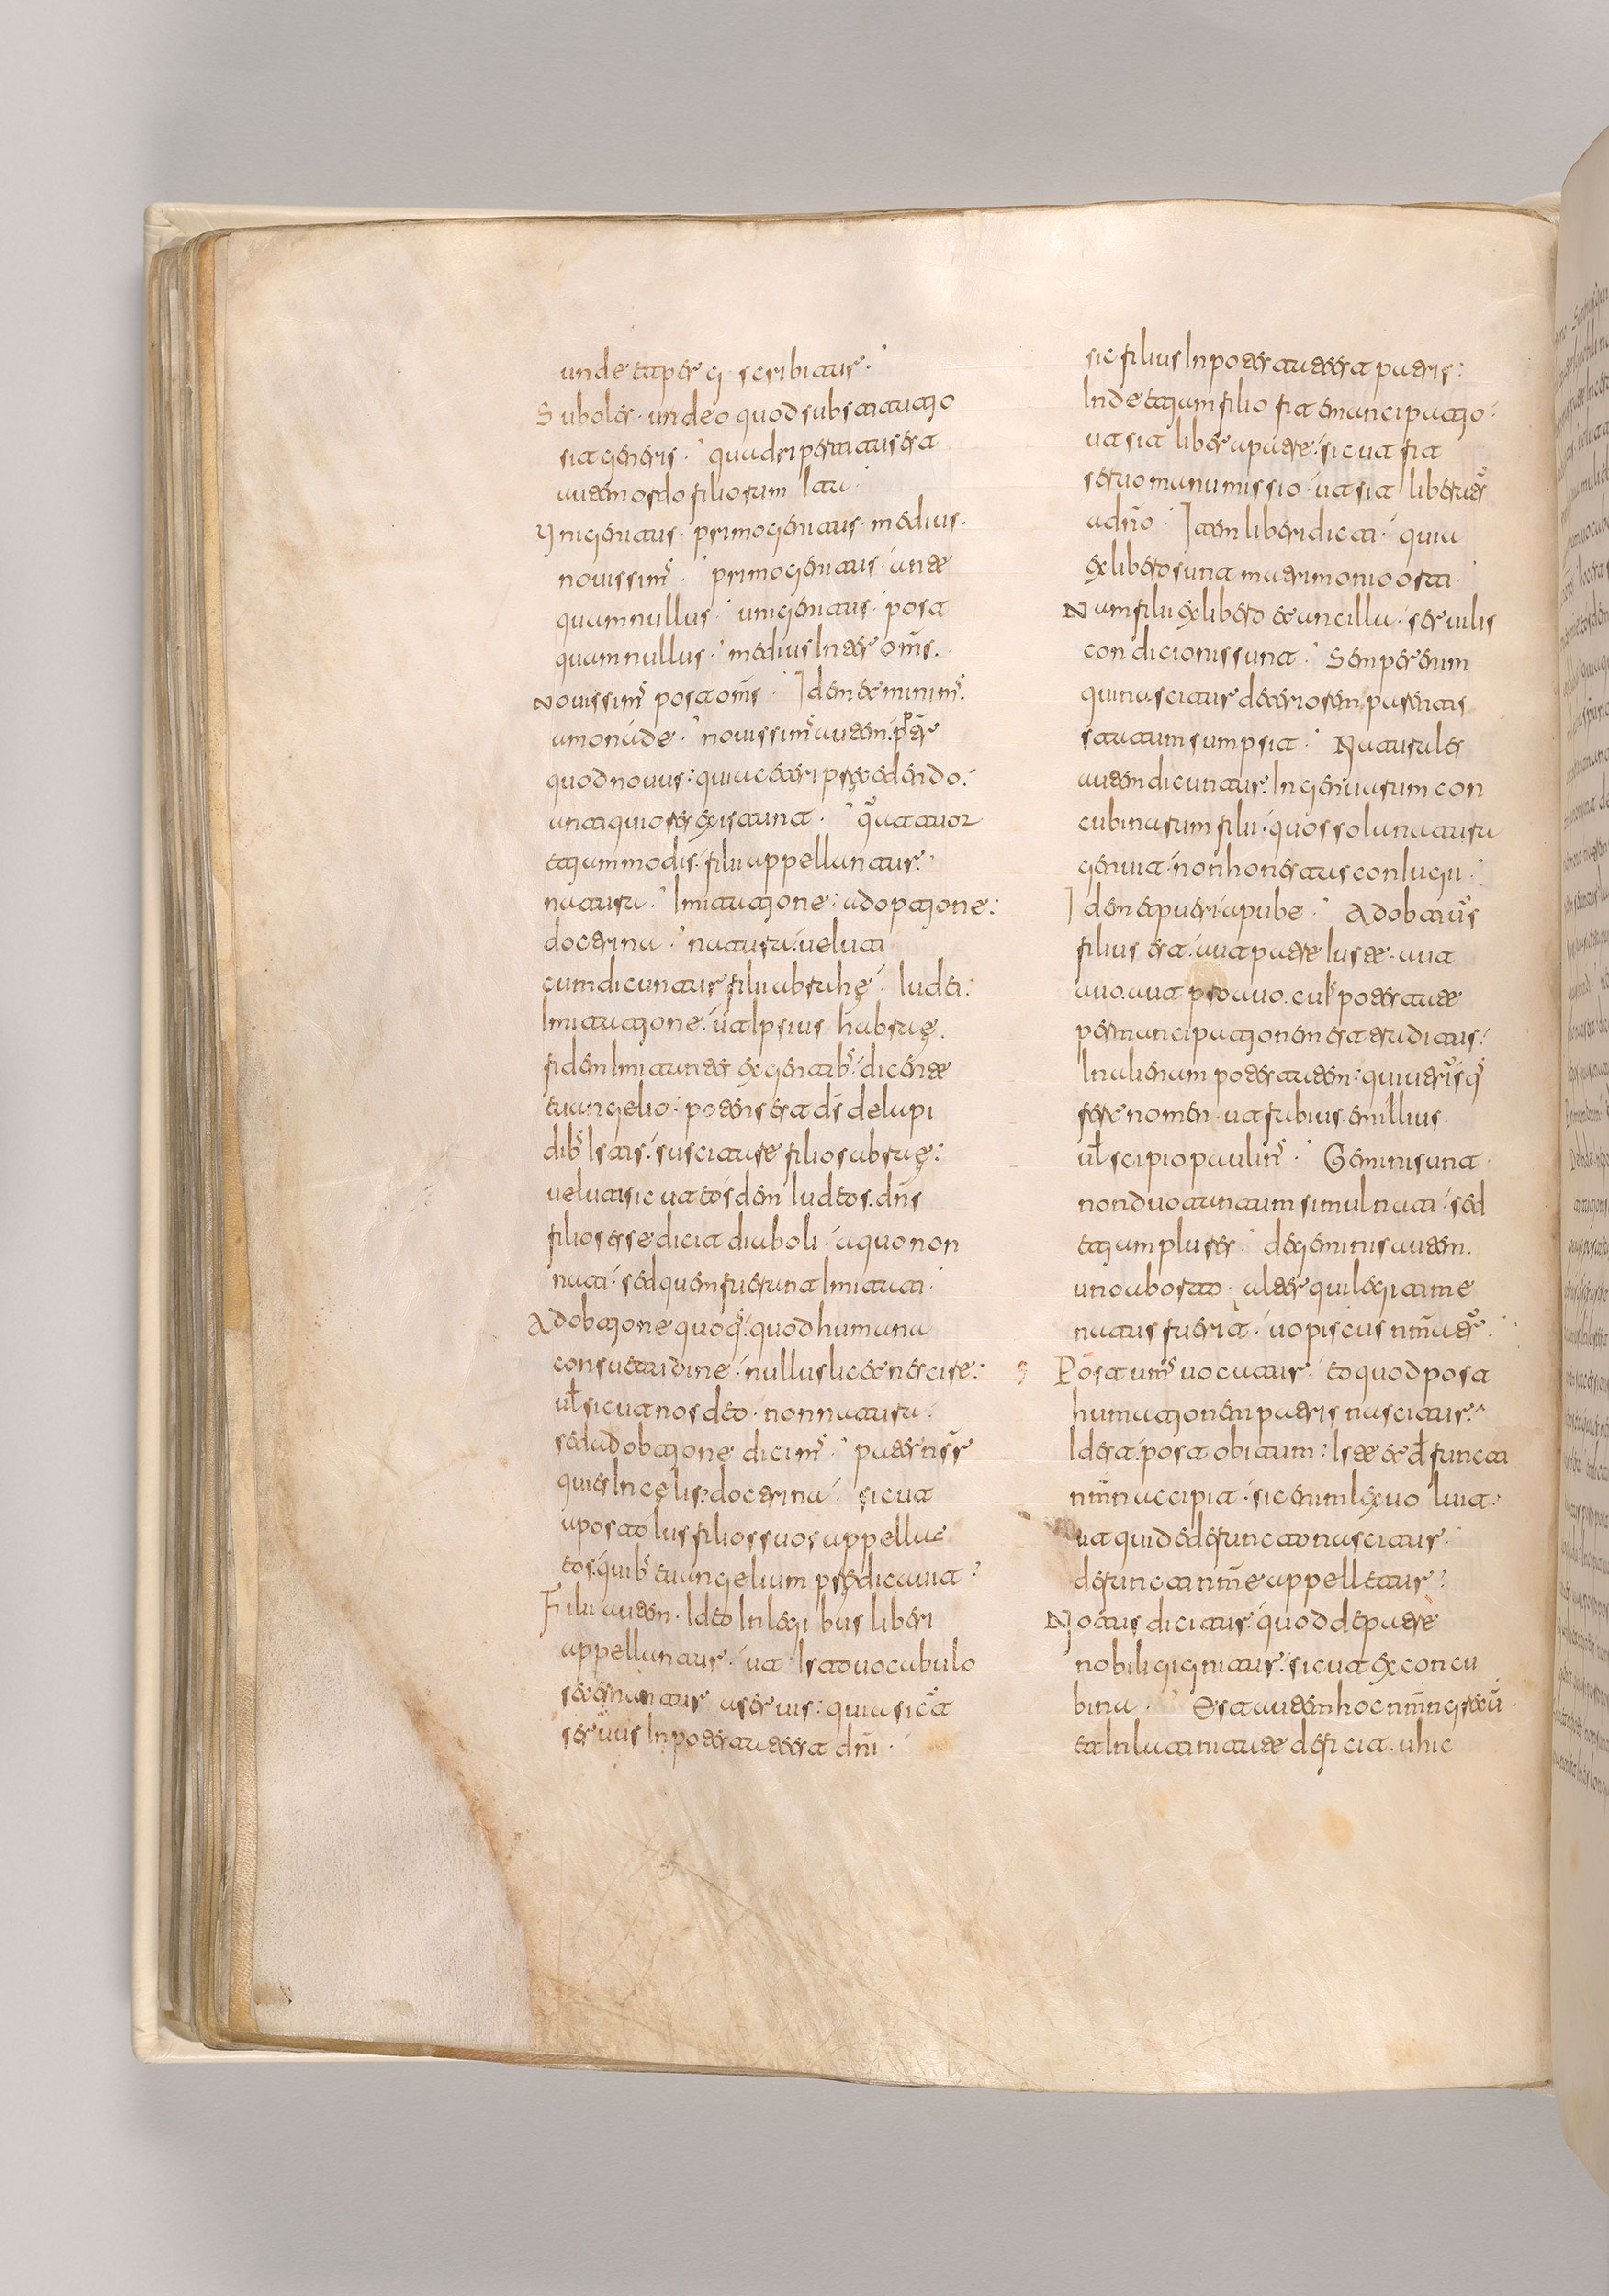 unde et per g scribitur.
Suboles. unde o quod substitatio
sit generis. quadripertitus est
autem ordo filiorum ita.
Unigenitus. primogenitus. medius.
nouissim᾽. primogenitus ante
quam nullus. unigenitus. post
quam nullus. medius inter om̅s.
Nouissim᾽ post om̅s. Idem et minim᾽.
a monade. nouissim᾽ autem. p̅ter
quod nouus: quia ceteri pręcedendo.
antiquiores existunt. quattuor
etiam modis. filii appellantur.
natura. Imitatione: adoptione:
doctrina. natura. ueluti
cum dicuntur filii abrahę. Iudei:
Imitatione. ut Ipsius habraę.
fidem Imitantes ex gentib᾽. dicente
euangelio: potens est d̅s de lapi
dib᾽ Istis. suscitare filios abraę:
ueluti sicut eosdem Iudeos. d̅n̅s
filios esse dicit diaboli. a quo non
nati. sed quem fuerunt Imitati.
Adobtione quoq᾽. quod humana
consuetudine. nullus licet nescire:
ul̅ sicut nos deo. non natura.
sed adobtione dicim᾽. pater ns̅r
qui es In cęlis: doctrina. sicut
apostolus filios suos appellat
eos. quib᾽ euangelium prędicauit:
Filii autem. Ideo In legibus liberi
appellantur. ut Isto uocabulo
secernantur a seruis: quia sicut
seruus In potestate est dn̅i.
sic filius In potestate est patris:
Inde etiam filio fit emancipatio.
ut sit liber a patre. sicut fit
seruo manumissio. ut sit libertus
a dn̅o. Item liberi dicti. quia
ex libero sunt matrimonio orti.
Nam filii ex libero et ancilla. seruilis
condicionis sunt. Semper enim
qui nascitur deteriorem parentis
statum sumpsit. Naturales
autem dicuntur. Ingenuarum con
cubinarum filii. quos sola natura
genuit. non honestas coniugii.
Idem et pueri a pube. Adobtiuus
filius est. aut patre iuste. aut
auo. aut proauo. cui᾽ potestate
per mancipationem est traditus.
In alienam potestatem. qui utriusq᾽
fert nomen. ut fabius. emillius.
ul̅ scipio. paulin᾽. Gemini sunt.
non duo tantum simul nati. sed
etiam plures. de geminis autem.
uno aborto. alter qui legitime
natus fuerit. uopiscus nm̅atur.
Postum᾽ uocatur. eo quod post
humationem patris nascitur.
Id est. post obitum: Iste et d̅functi
nm̅n accipit. sic enim lex uoluit.
ut qui de defuncto nascitur.
defuncti nm̅e appelletur.
Notus dicitur. quod de patre
nobili gignitur. sicut ex concu
bina. Est autem hoc nm̅n grecū.
et In latinitate deficit. uhic